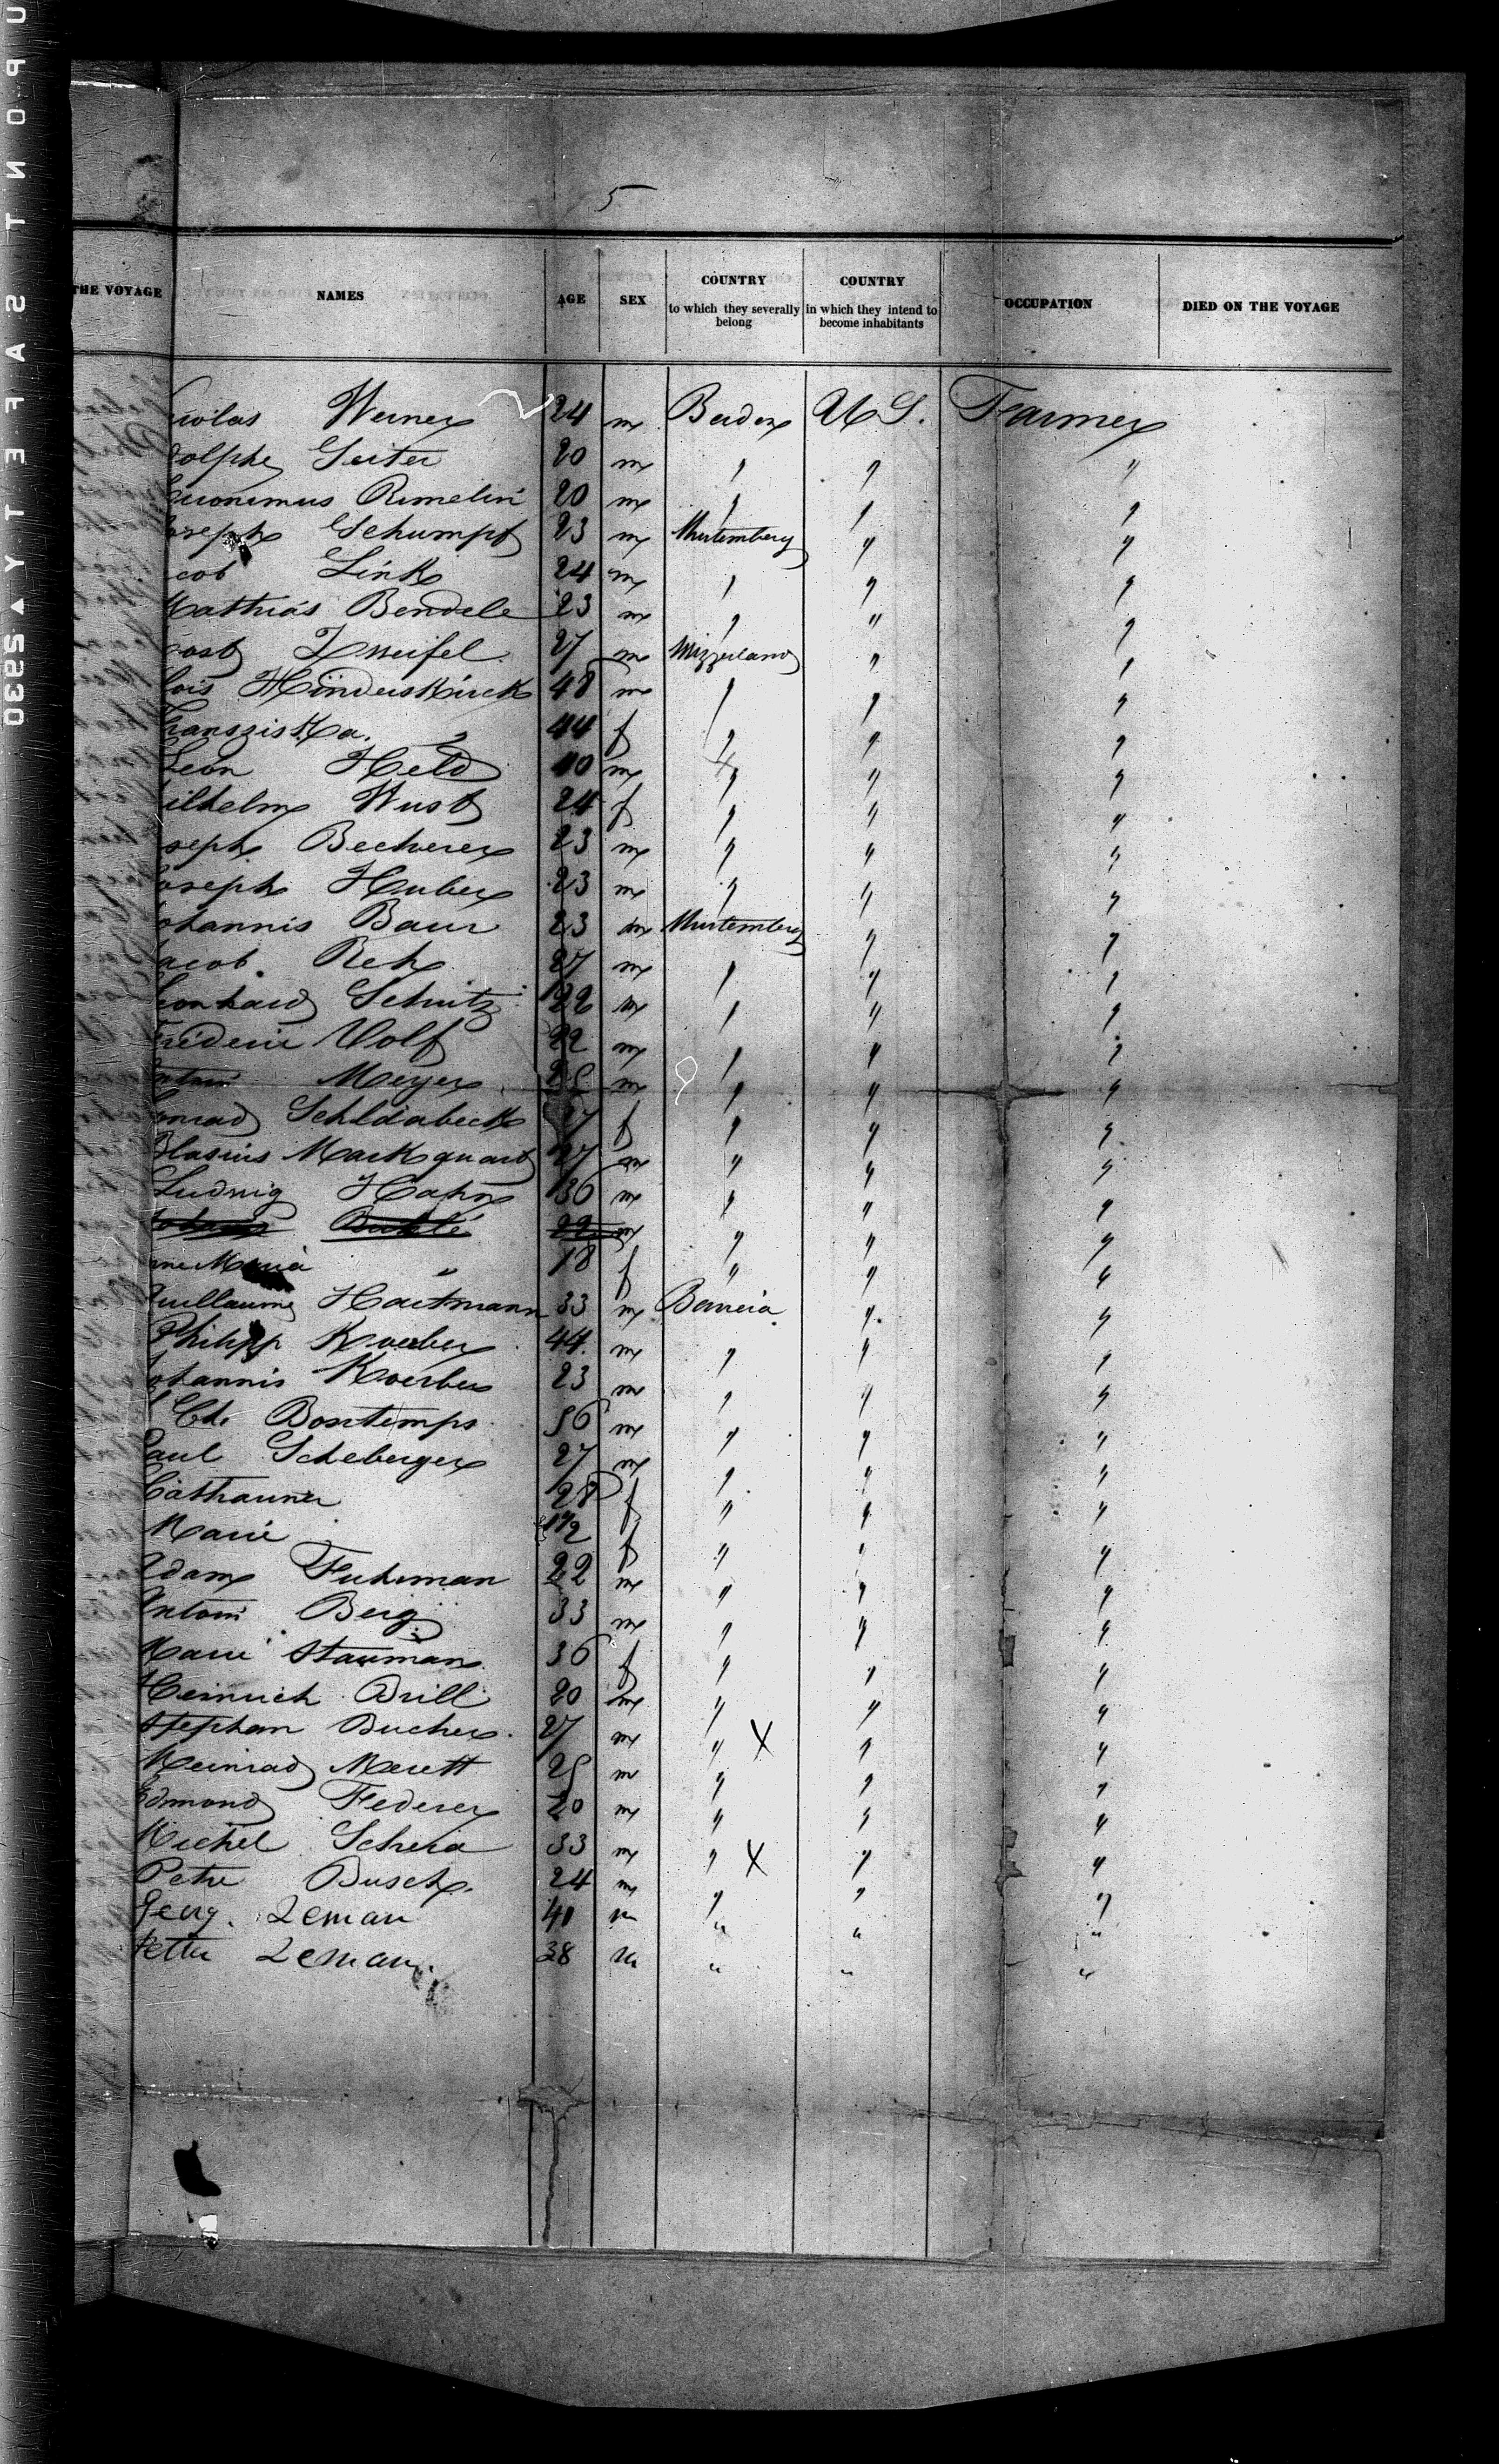 5
THE VOYAGE NAMES AGE SEX COUNTRY to which they severally belong COUNTRY in which they intend to become inhabitants OCCUPATION DIED ON THE VOYAGE
icolas Werner 24 m Baden U S. Farmer
dolphe Seiter 20 m " " "
ieronimus Rimelin 20 m " " "
oseph Schumpf 23 m Wurtemberg " "
acob Link 24 m " " "
Mathias Bendele 23 m " " "
Jost Zweifel 27 m Swizzerland " "
lois Hinderskirck 48 m " " "
Fransziska. " 44 f " " "
Leon Held 10 m " " "
ilhelm Wust 24 f " " "
oseph Becherer 23 m " " "
Joseph Huber 23 m " " "
Johannis Baur 23 m Wurtemberg " "
Jacob Reh 27 m " " "
Leonhard Schnitz 22 m " " "
Frederic Wolf 22 m " " "
Antoin Meyer 25 m " " "
Conrad 27 f " " "
Blasius Markquart 27 m " " "
Ludwig Hahn 36 m " " "
22 m " " "
nne Maria " 18 f " " "
Guillaume Hartmann 33 m Bavaria " "
Philipp Koerber 44. m " " "
Johannis Koerber 23 m " " "
Bontemps 56 m " " "
Paul Scheberger 27 m " " "
Catharina 28 f " " "
Marie 1 1/2 f " " "
Adam Fuhrman 22 m " " "
Antoni Berg 33 m " " "
Marie Stauman 36 f " " "
Heinrich Brill 20 m " " "
Stephan Bucher 27 m " X " "
Meinrad Merett 25 m " " "
Edmond Federer 20 m " " "
Michel Schera 33 m " X " "
Peter Busch. 24 m " " "
Georg. Leman 41 m " " "
Petter Leman. 38 m " " "
UPONT SAFETY ▲ 2930